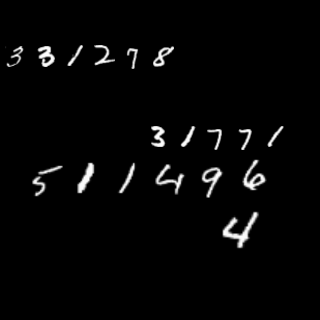 331278
31771
511496
4